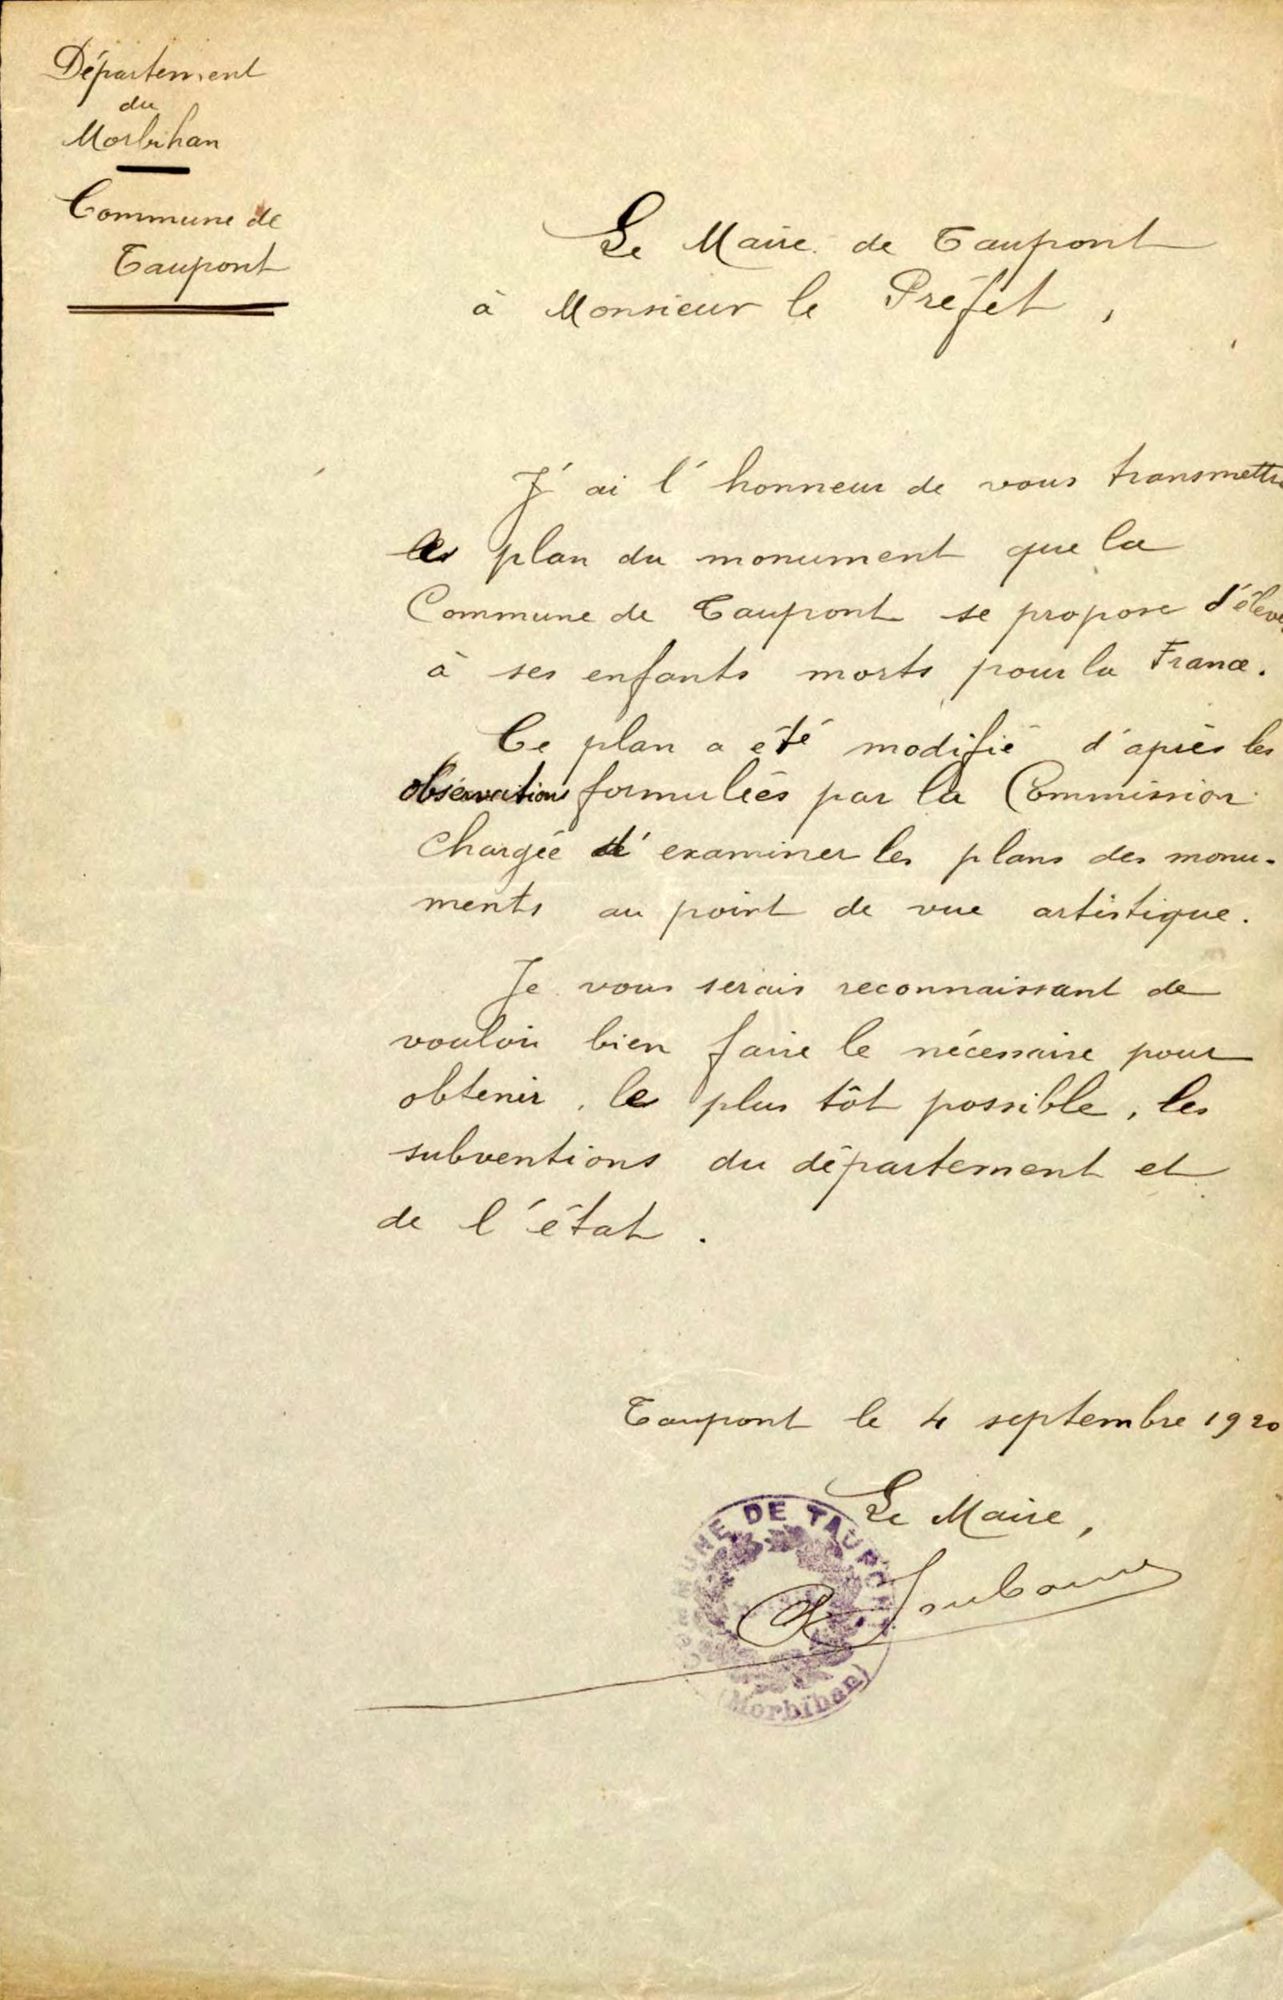 Département
du
Morbihan
Commune de
Taupont
Le Maire de Taupont
à Monsieur le Préfet,
J'ai l'honneur de vous transmettre
le plan du monument que la
Commune de Taupont se propose d'élever
à ses enfants morts pour la France.
Ce plan a été modifié d'après les
observations formulées par la Commission
chargée d'examiner les plans des monu-
ments au point de vue artistique.
Je vous serais reconnaissant de
vouloir bien faire le nécessaire pour
obtenir, le plus tôt possible, les
subventions du département et
de l'état.
Taupont le 4 septembre 1920
Le Maire,
COMMUNE DE TAUPONT
(Morbihan)